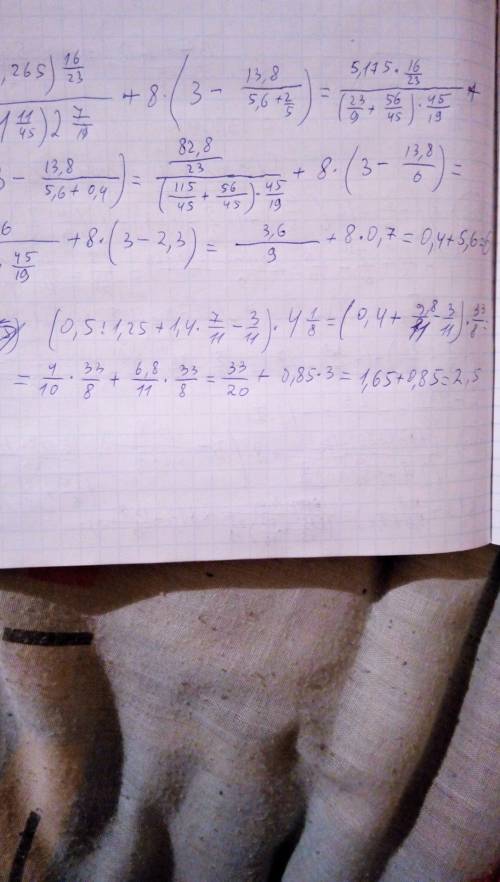 ,265) 16/23 / 1 11/45) 2 7/19 + 8·(3 − 13,8/(5,6 + 2/5)) = 5,175 · 16/23 / (23/9 + 56/45) · 45/19 +
3 − 13,8/(5,6 + 0,4)) = 82,8/23 / (115/45 + 56/45) · 45/19 + 8·(3 − 13,8/6) =
6 / · 45/19 + 8·(3 − 2,3) = 3,6/9 + 8·0,7 = 0,4 + 5,6 =
(0,5 : 1,25 + 1,4 · 7/11 − 3/11) · 4 1/8 = (0,4 + 9,8/11 − 3/11) · 33/8 =
= 4/10 · 33/8 + 6,8/11 · 33/8 = 33/20 + 0,85·3 = 1,65 + 0,85 = 2,5